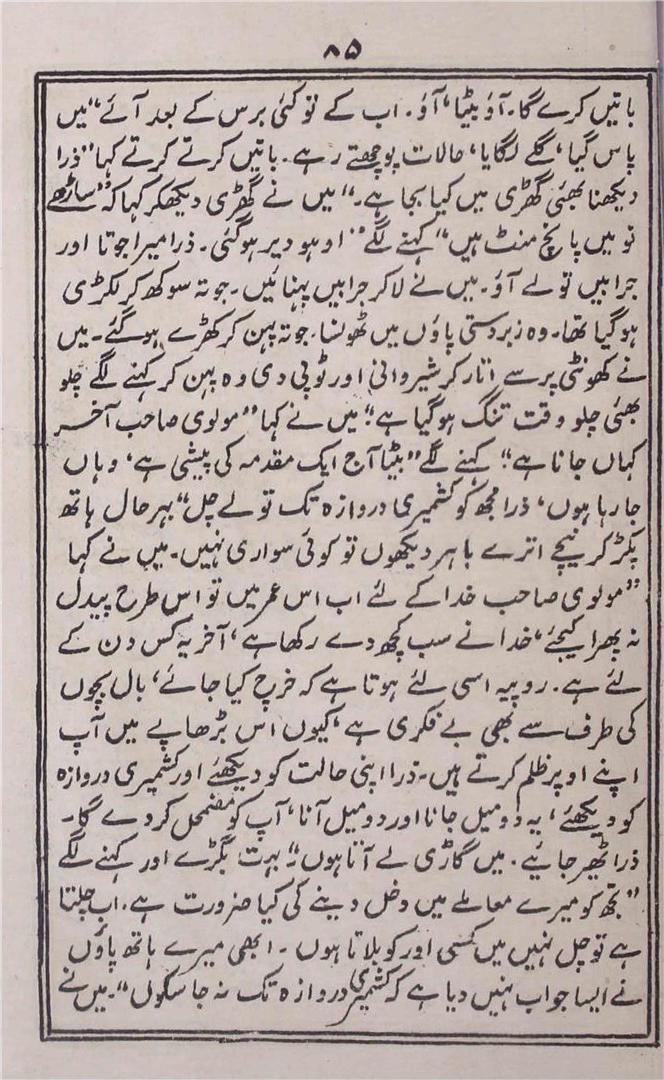 ۸۵
باتیں کرے گا۔ آؤ بیٹا، آؤ۔ اب کے تو کئی برس کے بعد آئے“ میں
پاس گیا، گلے لگایا، حالات پوچھتے رہے۔ باتیں کرتے کرتے کہا ”ذرا
دیکھنا بھئی گھڑی میں کیا بجا ہے۔“ میں نے گھڑی دیکھکر کہا کہ ”ساڑھے
نو میں پانچ منٹ ہیں“ کہنے لگے ”اوہو دیر ہوگئی۔ ذرا میرا جوتا اور
جرابیں تو لے آؤ۔ میں نے لاکر جرابیں پہنائیں۔ جوتہ سوکھ کر لکڑی
ہو گیا تھا۔ وہ زبردستی پاؤں میں ٹھونسا۔ جوتہ پہن کر کھڑے ہوگئے۔ میں
نے کھونٹی پر سے اتار کر شیروانی اور ٹوپی دی وہ پہن کر کہنے لگے چلو
بھئی چلو وقت تنگ ہو گیا ہے“ میں نے کہا ”مولوی صاحب آخر
کہاں جانا ہے“ کہنے لگے ”بیٹا آج ایک مقدمہ کی پیشی ہے، وہاں
جا رہا ہوں، ذرا مجھ کو کشمیری دروازہ تک تو لے چل“ بہرحال ہاتھ
پکڑ کر نیچے اترے باہر دیکھوں تو کوئی سواری نہیں۔ میں نے کہا
”مولوی صاحب خدا کے لئے اب اس عمر میں تو اس طرح پیدل
نہ پھرا کیجئے، خدا نے سب کچھ دے رکھا ہے، آخر یہ کس دن کے
لئے ہے۔ روپیہ اسی لئے ہوتا ہے کہ خرچ کیا جائے، بال بچوں
کی طرف سے بھی بے فکری ہے، کیوں اس بڑھاپے میں آپ
اپنے اوپر ظلم کرتے ہیں۔ ذرا اپنی حالت کو دیکھئے اور کشمیری دروازہ
کو دیکھئے، یہ دو میل جانا اور دو میل آنا، آپ کو مضمحل کر دے گا۔
ذرا ٹھیر جائیے۔ میں گاڑی لے آتا ہوں“ بہت بگڑے اور کہنے لگے
”تجھ کو میرے معاملے میں دخل دینے کی کیا ضرورت ہے۔ اب چلتا
ہے تو چل نہیں میں کسی اور کو بلاتا ہوں۔ ابھی میرے ہاتھ پاؤں
نے ایسا جواب نہیں دیا ہے کہ کشمیری دروازہ تک نہ جا سکوں“۔ میں نے